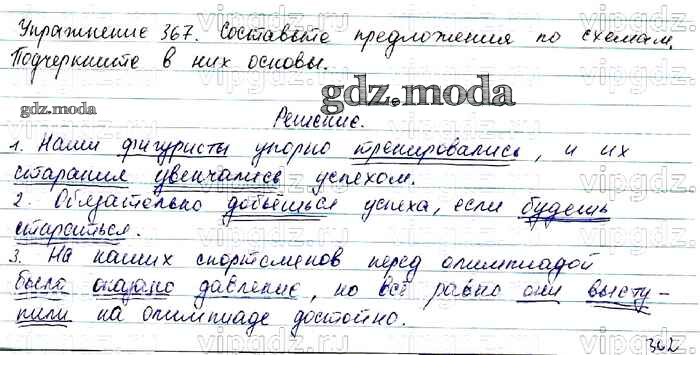 Упражнение 367. Составьте предложения по схемам.
Подчеркните в них основы.
gdz.moda
gdz.moda
Решение.
1. Наши фигуристы упорно тренировались, и их
старания увенчались успехом.
2. Обязательно добьёшься успеха, если будешь
стараться.
3. На наших спортсменов перед олимпиадой
было оказано давление, но всё равно они высту-
пили на олимпиаде достойно.
362